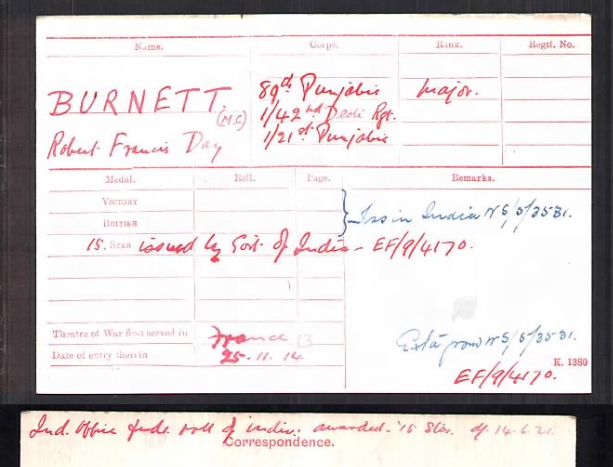 Name. Corps. Rank. Regtl. No.
BURNETT. (M.C) 89th Punjabis Major.
1/42nd Deoli Rgt.
Robert Francis Day 1/21st Punjabis
Medal. Roll. Page. Remarks.
VICTORY
BRITISH } Iss in India NS/5/3531.
15. STAR issued by Govt. of India - EF/9/4170.
Theatre of War first served in France
Date of entry therein 25.11.14
NS/5/3531.
K. 1380
EF/9/4170.
Ind. Office roll of indiv: awarded '15 Star. 14.6.21.
Correspondence.